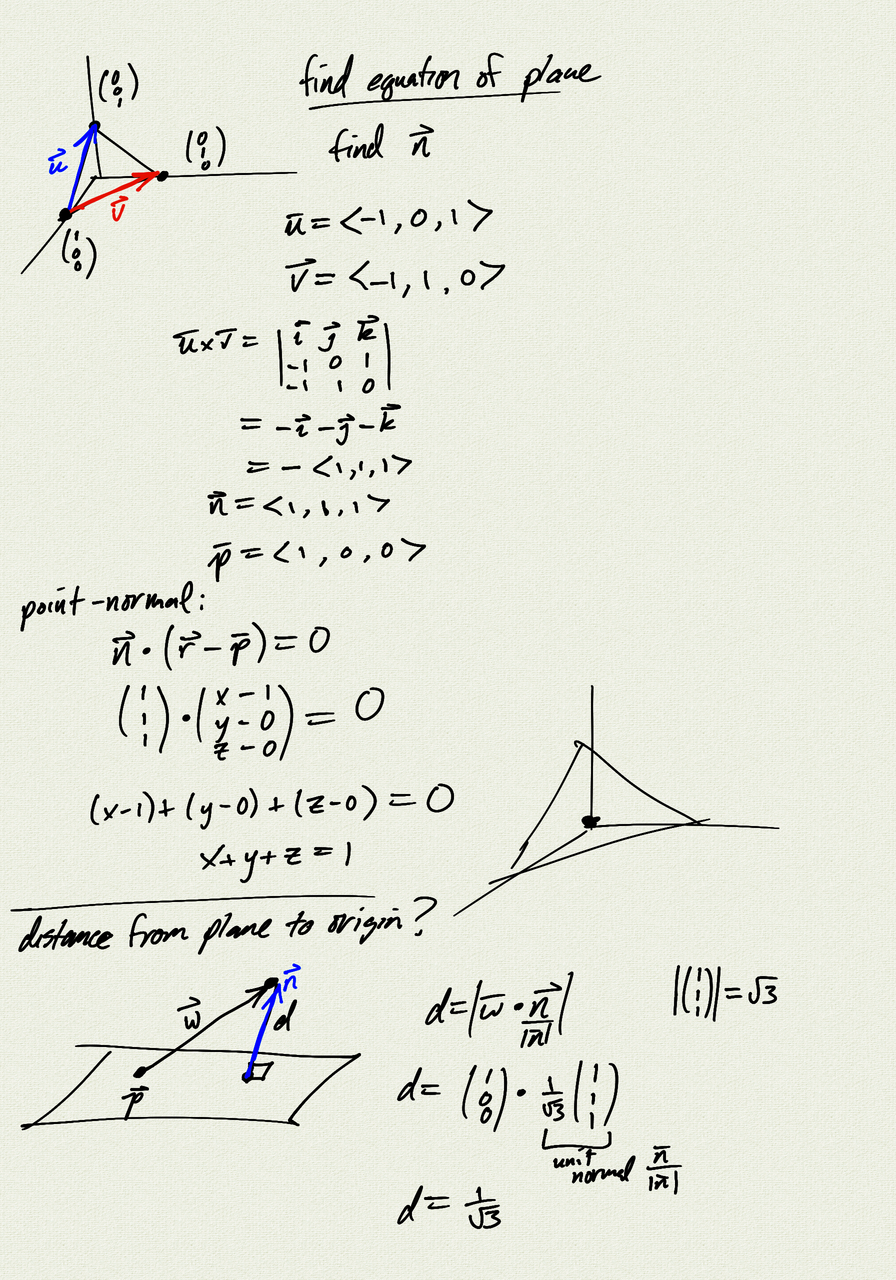 find equation of plane
(0 0 1)
find n⃗
(0 1 0)
u⃗
v⃗
(1 0 0)
u̅ = <-1, 0, 1>
v⃗ = <-1, 1, 0>
u̅ × v̅ = | i⃗ j⃗ k⃗ |
-1 0 1
-1 1 0
= -i⃗ - j⃗ - k⃗
= - <1, 1, 1>
n⃗ = <1, 1, 1>
p̅ = <1, 0, 0>
point-normal:
n⃗ · (r⃗ - p̅) = 0
(1 1 1) · (x - 1 y - 0 z - 0) = 0
(x-1) + (y-0) + (z-0) = 0
x + y + z = 1
distance from plane to origin?
n⃗
w⃗
d
p⃗
d = |w̅ · n⃗/|n̅||
|(1 1 1)| = √3
d = (1 0 0) · 1/√3 (1 1 1)
unit normal n̅/|n̅|
d = 1/√3